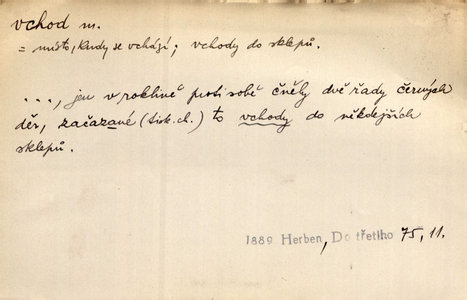 vchod m.
= místo, kudy se vchází; vchody do sklepů.
..., jen v roklině proti sobě čněly dvě řady černých
děr, začazané (tisk.ch.) to vchody do někdejších
sklepů.
1889 Herben, Do třetího 75, 11.